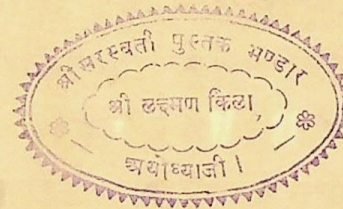 श्री सरस्वती पुस्तक भण्डार
श्री लक्ष्मण किला,
अयोध्याजी ।